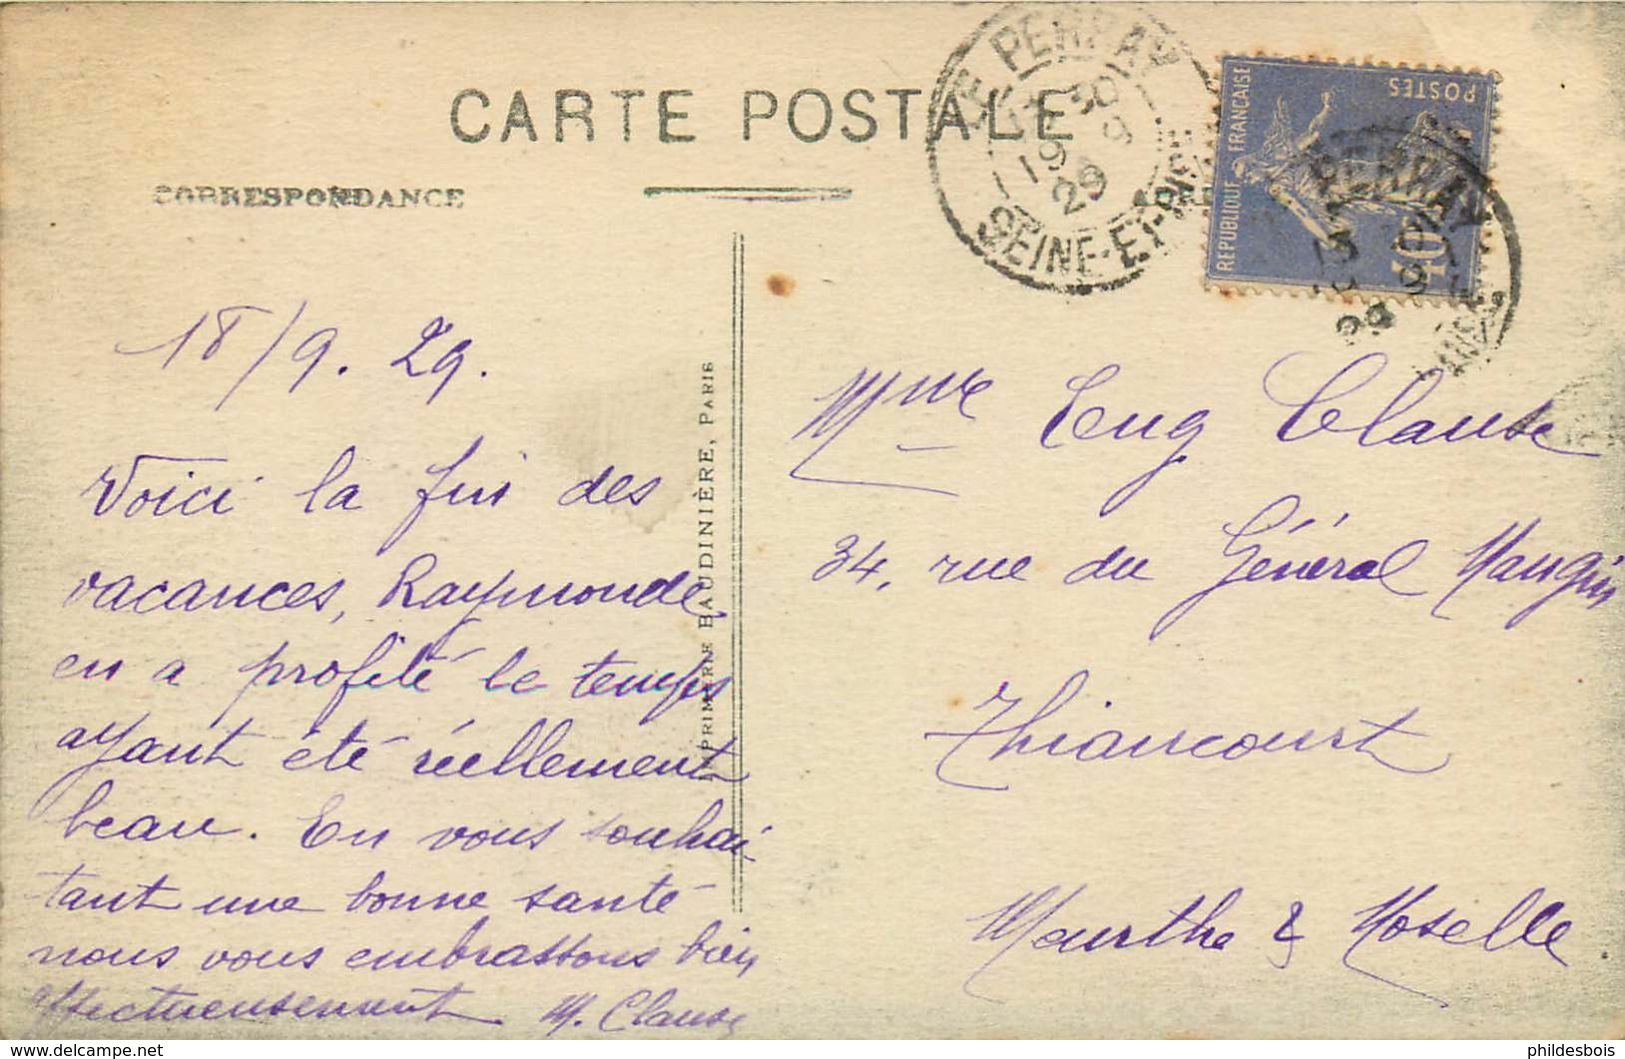 CARTE POSTALE
CORRESPONDANCE
LE PERRAY
30
9
29
SEINE-ET-OISE
REPUBLIQUE FRANCAISE
POSTES
40
PERRAY
IMPRIMERIE BAUDINIÈRE, PARIS
18/9. 29.
Voici la fin des
vacances, Raymonde
en a profité le temps
ayant été réellement
beau. En vous souhai-
tant une bonne santé
nous vous embrassons bien
affectueusement M. Clause
Mme Eug Clause
34, rue du Général Mangin
Thiaucourt
Meurthe & Moselle
phildesbois